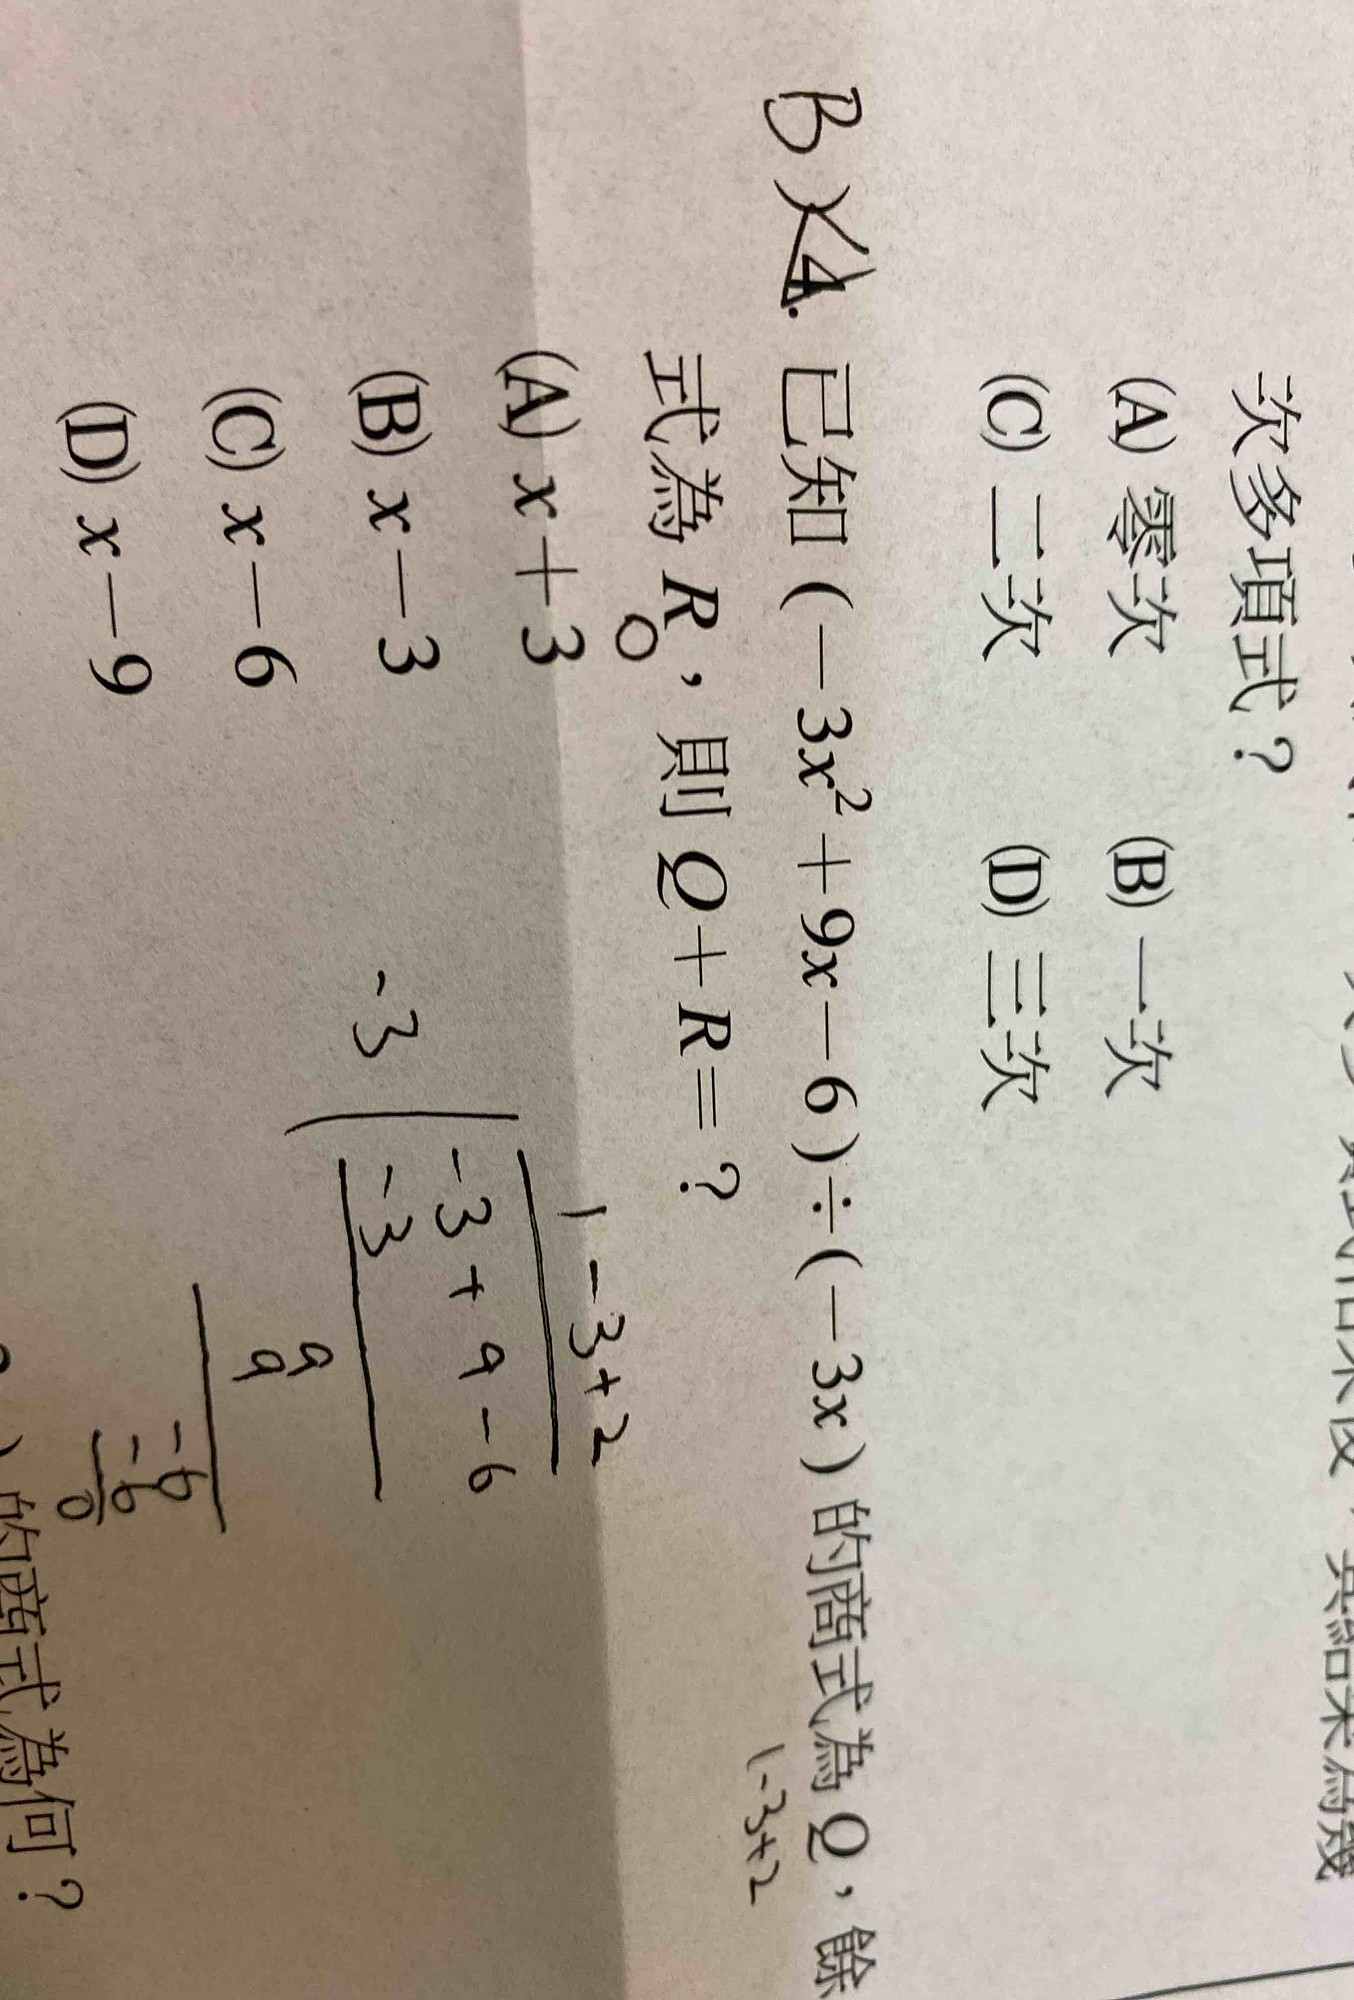 次多項式？
(A) 零次 (B) 一次
(C) 二次 (D) 三次
B ) 4. 已知 (－3x²＋9x－6)÷(－3x) 的商式為 Q，餘
1-3+2
式為 R，則 Q＋R＝？
0
(A) x＋3
(B) x－3
(C) x－6
(D) x－9
1-3+2
-3 -3+9-6
-3
9
9
-6
-6
0
的商式為何？